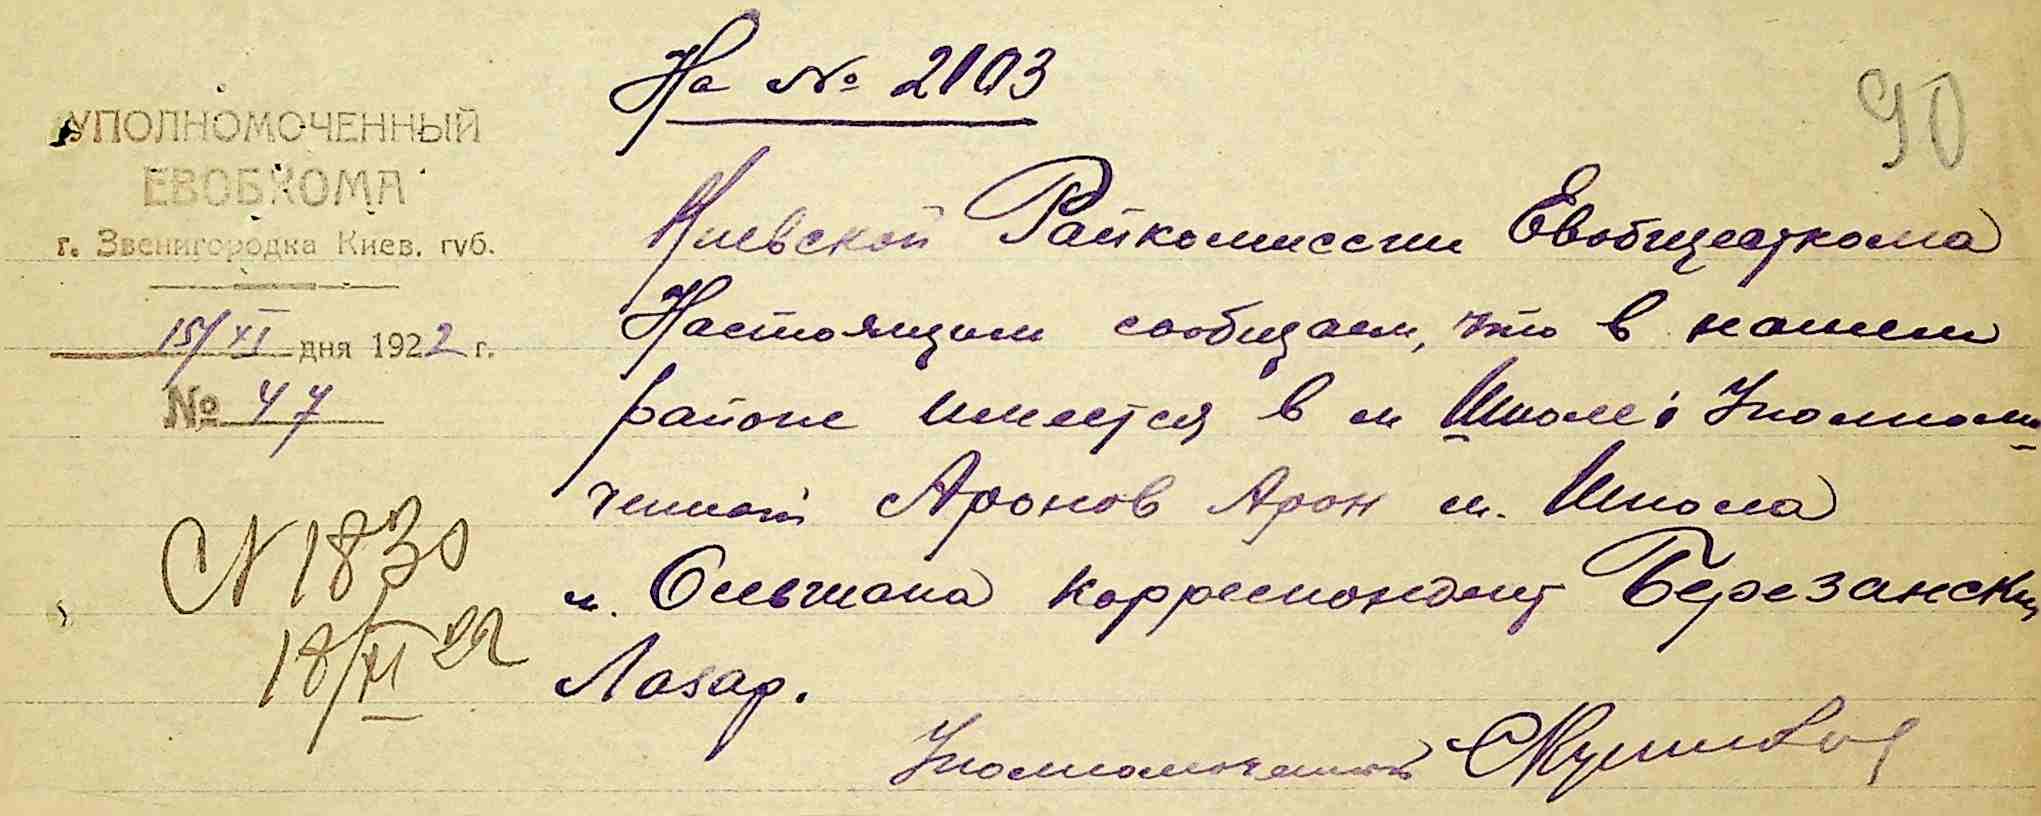 На № 2103
90
УПОЛНОМОЧЕННЫЙ
ЕВОБКОМА
г. Звенигородка Киев. губ.
15/XI дня 1922 г.
№ 47
Киевской Райкомиссии Евобщесткома
Настоящим сообщаем, что в нашем
районе имеется в м Шполе: Уполномо
ченный Аронов Арон м. Шпола
м. Ольшана корреспондент Березанский
Лазар.
Уполномоченный
N 1830
18/XI 22